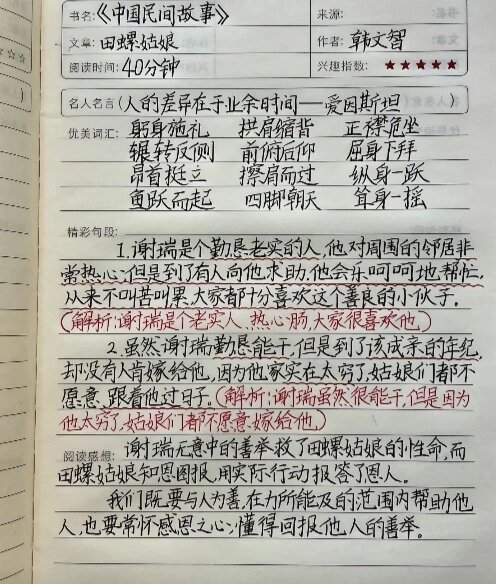 书名:《中国民间故事》 来源:
文章: 田螺姑娘 作者: 韩文智
阅读时间: 40分钟 兴趣指数: ★★★★★
名人名言(人的差异在于业余时间——爱因斯坦 )
优美词汇: 躬身施礼 拱肩缩背 正襟危坐
辗转反侧 前俯后仰 屈身下拜
昂首挺立 擦肩而过 纵身一跃
鱼跃而起 四脚朝天 耸身一摇
精彩句段:
1.谢瑞是个勤恳老实的人,他对周围的邻居非
常热心;但是到了有人向他求助,他会乐呵呵地帮忙,
从来不叫苦叫累,大家都十分喜欢这个善良的小伙子。
(解析:谢瑞是个老实人、热心肠,大家很喜欢他。)
2.虽然谢瑞勤恳能干,但是到了该成亲的年纪,
却没有人肯嫁给他,因为他家实在太穷了,姑娘们都不
愿意跟着他过日子。(解析:谢瑞虽然很能干,但是因为
他太穷了,姑娘们都不愿意嫁给他。)
阅读感想: 谢瑞无意中的善举救了田螺姑娘的性命,而
田螺姑娘知恩图报,用实际行动报答了恩人。
我们既要与人为善,在力所能及的范围内帮助他
人,也要常怀感恩之心,懂得回报他人的善举。